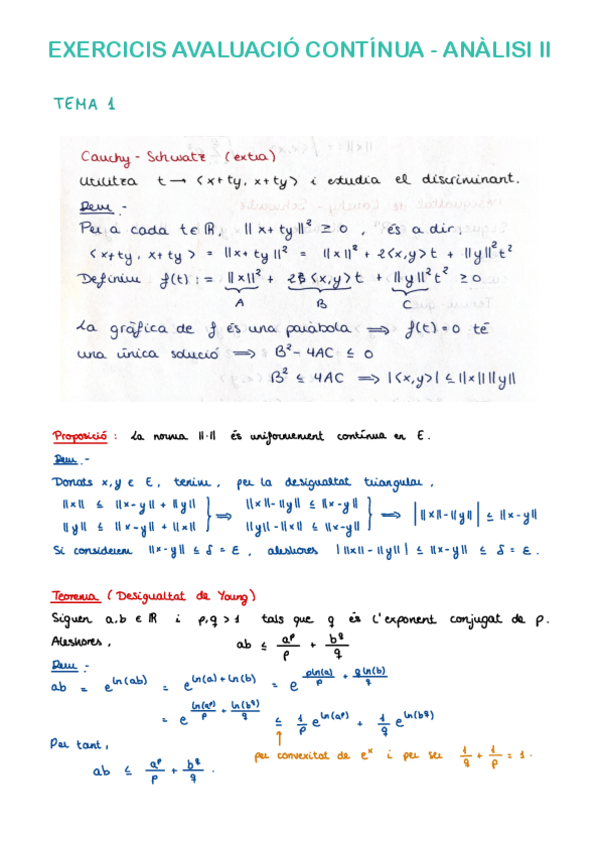 EXERCICIS AVALUACIÓ CONTÍNUA - ANÀLISI II
TEMA 1
Cauchy - Schwatz (extra)
Utilitza t → <x+ty, x+ty> i estudia el discriminant.
Dem.-
Per a cada t∈ℝ, ||x+ty||² ≥ 0, és a dir,
<x+ty, x+ty> = ||x+ty||² = ||x||² + 2<x,y>t + ||y||²t²
Definim f(t) := ||x||² + 2<x,y>t + ||y||²t² ≥ 0
A B C
La gràfica de f és una paràbola ⟹ f(t)=0 té
una única solució ⟹ B²- 4AC ≤ 0
B² ≤ 4AC ⟹ |<x,y>| ≤ ||x|| ||y||
Proposició : La norma ||·|| és uniformement contínua en E.
Dem.-
Donats x,y ∈ E, tenim, per la desigualtat triangular,
||x|| ≤ ||x-y|| + ||y|| ⟹ ||x||-||y|| ≤ ||x-y|| ⟹ | ||x||-||y|| | ≤ ||x-y||
||y|| ≤ ||x-y|| + ||x|| ||y||-||x|| ≤ ||x-y||
Si considerem ||x-y|| ≤ δ = ε, aleshores | ||x||-||y|| | ≤ ||x-y|| ≤ δ = ε.
Teorema (Desigualtat de Young)
Siguen a,b ∈ ℝ i p,q > 1 tals que q és l'exponent conjugat de p.
Aleshores, ab ≤ a^p/p + b^q/q
Dem.-
ab = e^ln(ab) = e^(ln(a)+ln(b)) = e^(pln(a)/p + qln(b)/q)
= e^(ln(a^p)/p + ln(b^q)/q) ≤ 1/p e^ln(a^p) + 1/q e^ln(b^q)
↑
Per tant, per convexitat de e^x i per ser 1/q + 1/p = 1.
ab ≤ a^p/p + b^q/q.